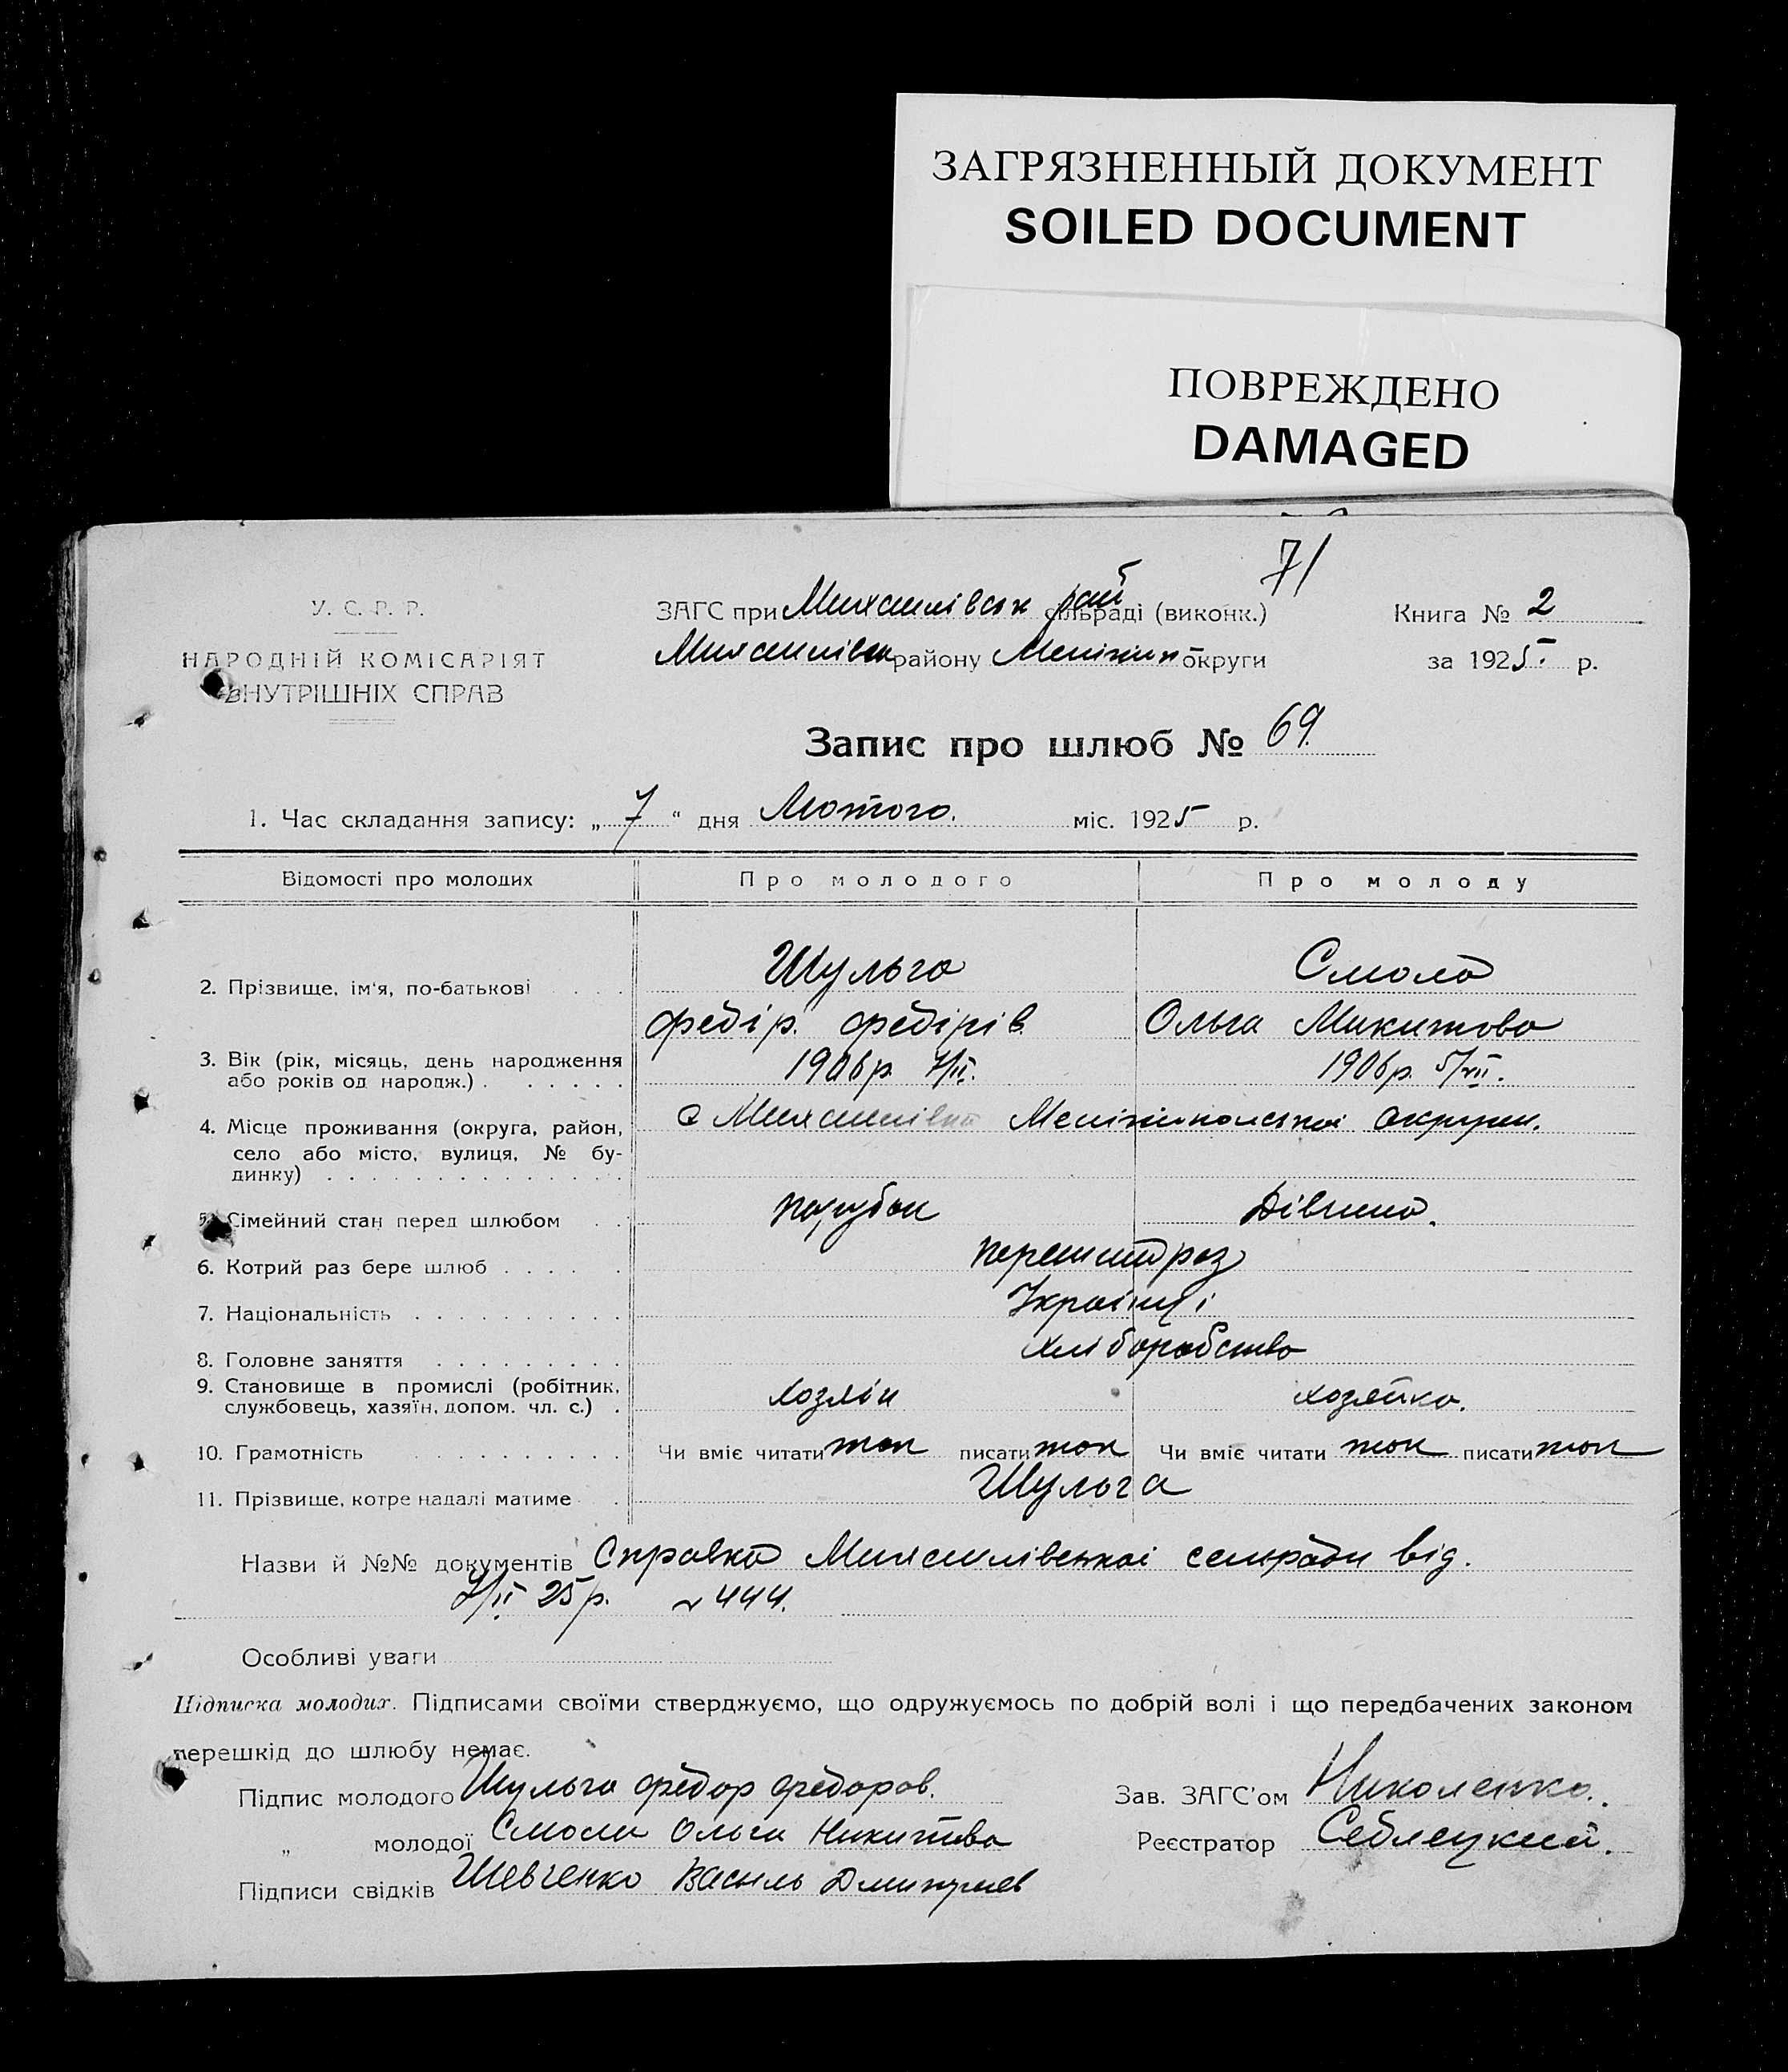 ЗАГРЯЗНЕННЫЙ ДОКУМЕНТ
SOILED DOCUMENT
ПОВРЕЖДЕНО
DAMAGED
71
У. С. Р. Р.
НАРОДНІЙ КОМІСАРІЯТ
ВНУТРІШНІХ СПРАВ
ЗАГС при Михайлівськ рай сільраді (виконк.)
Михайлівськ району Мелітоп округи
Книга № 2
за 1925 р.
Запис про шлюб № 69.
1. Час складання запису: „ 7 " дня Лютого. міс. 1925 р.
Відомості про молодих Про молодого Про молоду
2. Прізвище, ім'я, по-батькові Шульга Смола
Федір. Федірів. Ольга Микитова
3. Вік (рік, місяць, день народження
або років од народж.) 1906 р. 7/II. 1906 р. 5/VII.
4. Місце проживання (округа, район, с Михайлівка Мелітопольської округи.
село або місто, вулиця, № бу-
динку)
5. Сімейний стан перед шлюбом парубок Дівчина.
6. Котрий раз бере шлюб перший раз
7. Національність Українці
8. Головне заняття хліборобство
9. Становище в промислі (робітник,
службовець, хазяїн, допом. чл. с.) хозяїн хозяйка.
10. Грамотність Чи вміє читати так писати так Чи вміє читати так писати так
11. Прізвище, котре надалі матиме Шульга
Назви й №№ документів Справка Михайлівської сельради від.
7/II 25 р. № 444.
Особливі уваги
Підписка молодих. Підписами своїми стверджуємо, що одружуємось по добрій волі і що передбачених законом
перешкід до шлюбу немає.
Підпис молодого Шульга Федор Федоров.
Зав. ЗАГС'ом Николенко.
„ молодої Смола Ольга Никитова
Реєстратор
Підписи свідків Шевченко Василь Дмитриев